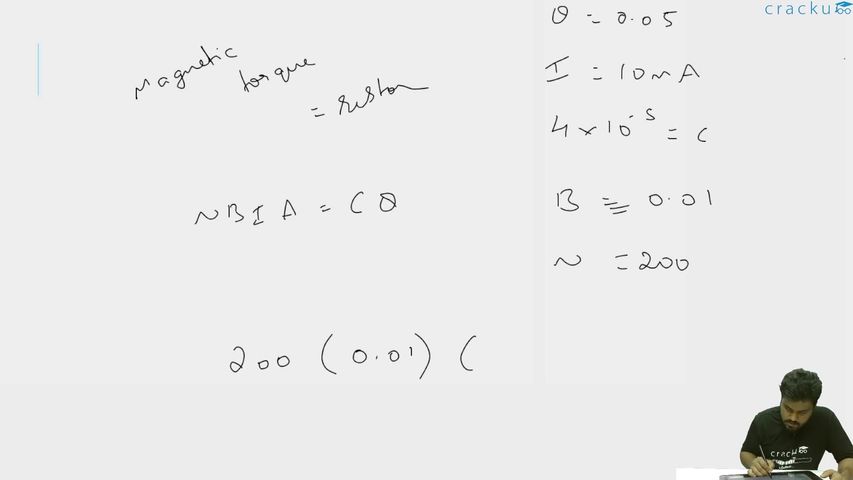 cracku
θ = 0.05
Magnetic torque
= restor
I = 10mA
4 × 10⁻⁵ = C
NBIA = Cθ
B = 0.01
N = 200
200 (0.01) (
cracku